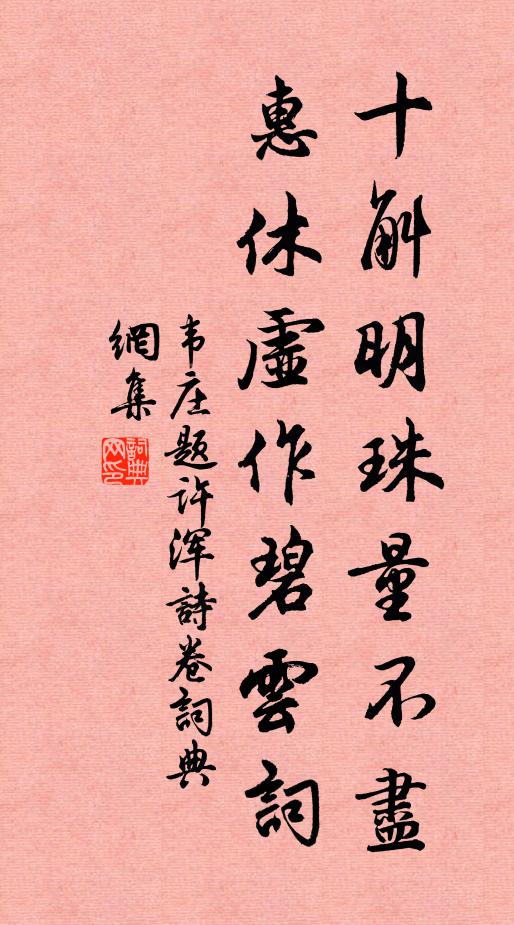 十斛明珠量不盡
惠休虛作碧雲詞
韦庄题许浑詩卷詞典
網集
詞典網印